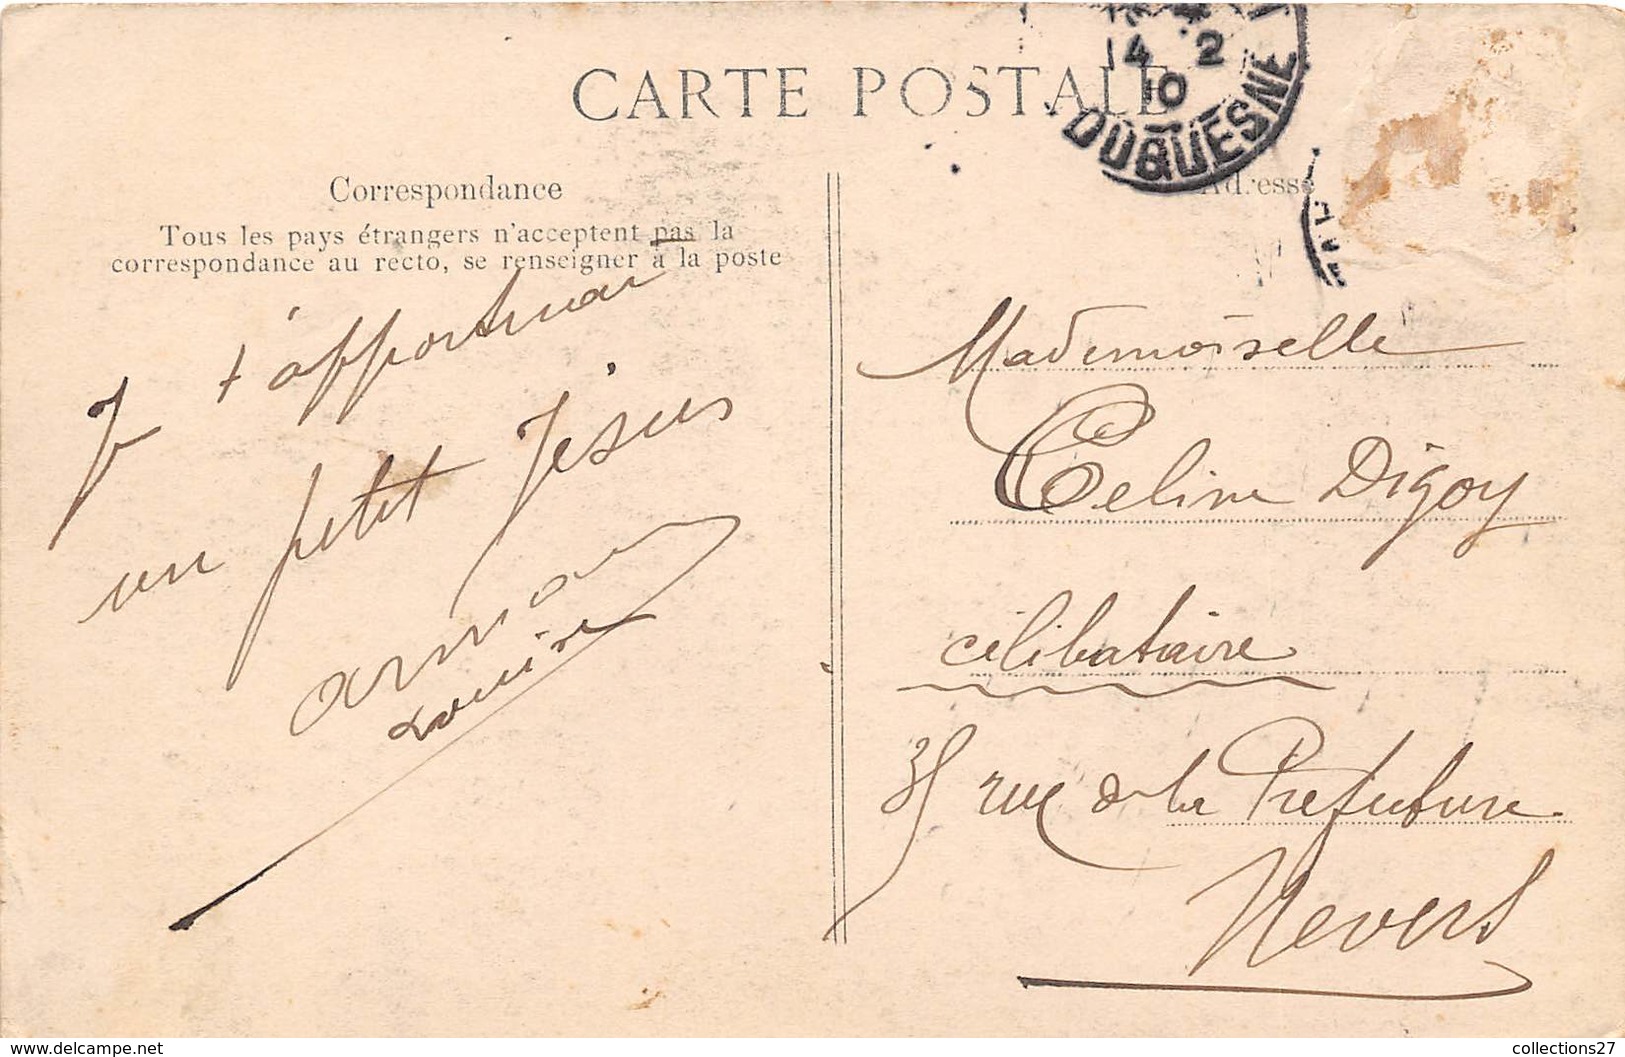 CARTE POSTALE
14 2
10
DUQUESNE
Correspondance
Tous les pays étrangers n'acceptent pas la
correspondance au recto, se renseigner à la poste
Adresse
J t'apporterai
un petit Jésus
Louise
Mademoiselle
Celine Digoy
célibataire
35 rue de la Préfecture
Nevers
collections27